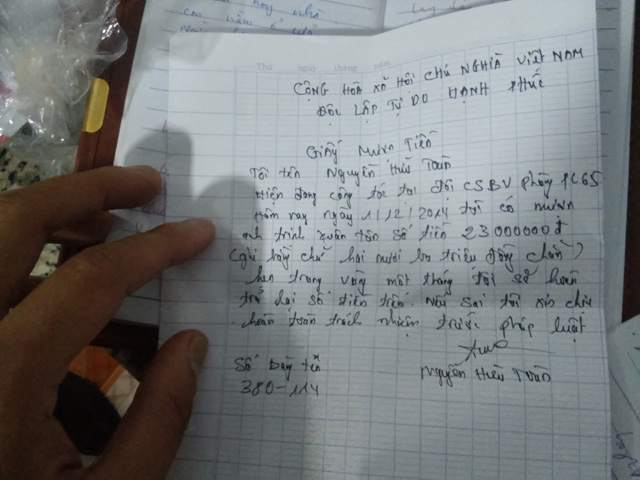 Thứ ngày tháng năm
CỘNG HÒA XÃ HỘI CHỦ NGHĨA VIỆT NAM
ĐỘC LẬP TỰ DO HẠNH PHÚC
GIẤY MƯỢN TIỀN
Tôi tên Nguyễn Hữu Toàn
Hiện đang công tác tại đội CSBV phòng PC65
Hôm nay ngày 1/12/2014 tôi có mượn
anh Trịnh Xuân Tôn số tiền 23000000đ
(ghi bằng chữ hai mươi ba triệu đồng chẵn)
hẹn trong vòng một tháng tôi sẽ hoàn
trả lại số tiền trên. Nếu sai tôi xin chịu
hoàn toàn trách nhiệm trước pháp luật
Số
380-114
Nguyễn Hữu Toàn